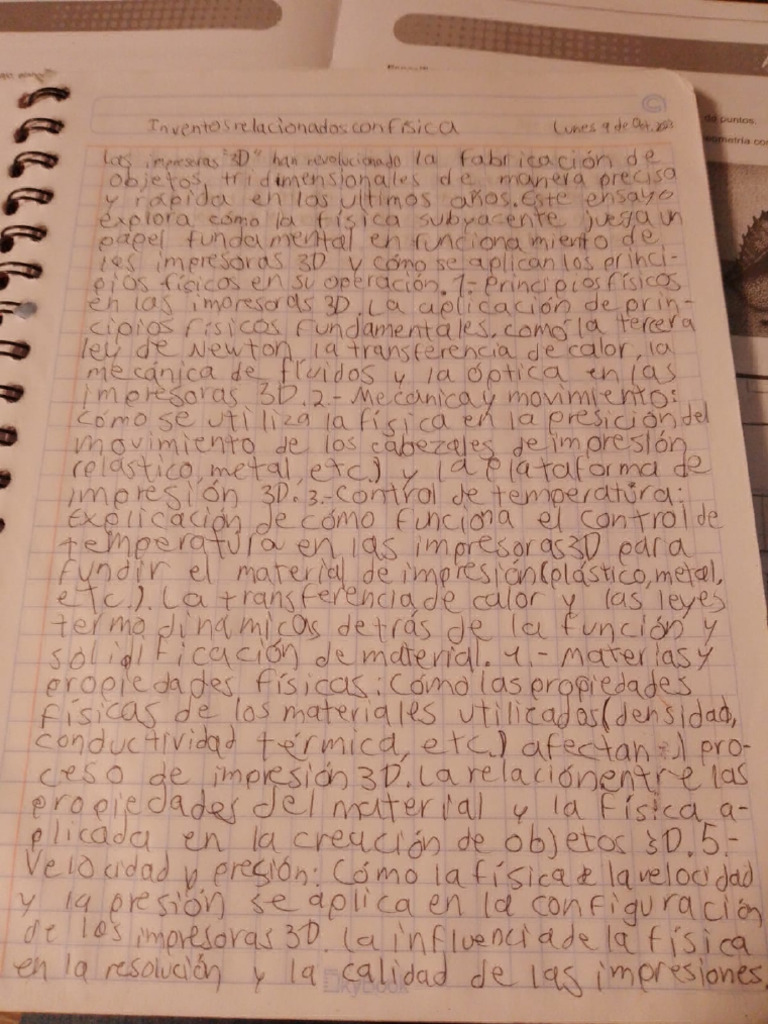 Inventos relacionados con física
Lunes 9 de Oct. 2023
Las impresoras "3D" han revolucionado la fabricación de
objetos tridimensionales de manera precisa
y rápida en los ultimos años. Este ensayo
explora cómo la física subyacente juega un
papel fundamental en funcionamiento de
las impresoras 3D y cómo se aplican los princi-
pios físicos en su operación. 1.- Principios físicos
en las impresoras 3D. La aplicación de prin-
cipios físicos fundamentales, como la tercera
ley de Newton, la transferencia de calor, la
mecánica de fluidos y la óptica en las
impresoras 3D. 2.- Mecánica y movimiento:
Cómo se utiliza la física en la presición del
movimiento de los cabezales de impresión
(plástico, metal, etc.) y la plataforma de
impresión 3D. 3.- Control de temperatura:
Explicación de cómo funciona el control de
temperatura en las impresoras 3D para
fundir el material de impresión (plástico, metal,
etc.). La transferencia de calor y las leyes
termodinámicas detrás de la función y
solidificación de material. 4.- Materias y
propiedades físicas: Cómo las propiedades
físicas de los materiales utilicados (densidad,
conductividad térmica, etc.) afectan el pro-
ceso de impresión 3D. La relación entre las
propiedades del material y la física a-
plicada en la creación de objetos 3D. 5.-
Velocidad y presión: Cómo la física de la velocidad
y la presión se aplica en la configuración
de las impresoras 3D. La influencia de la física
en la resolución y la calidad de las impresiones.
de puntos.